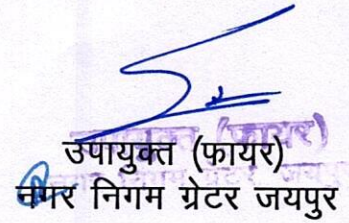 उपायुक्त (फायर)
नगर निगम ग्रेटर जयपुर